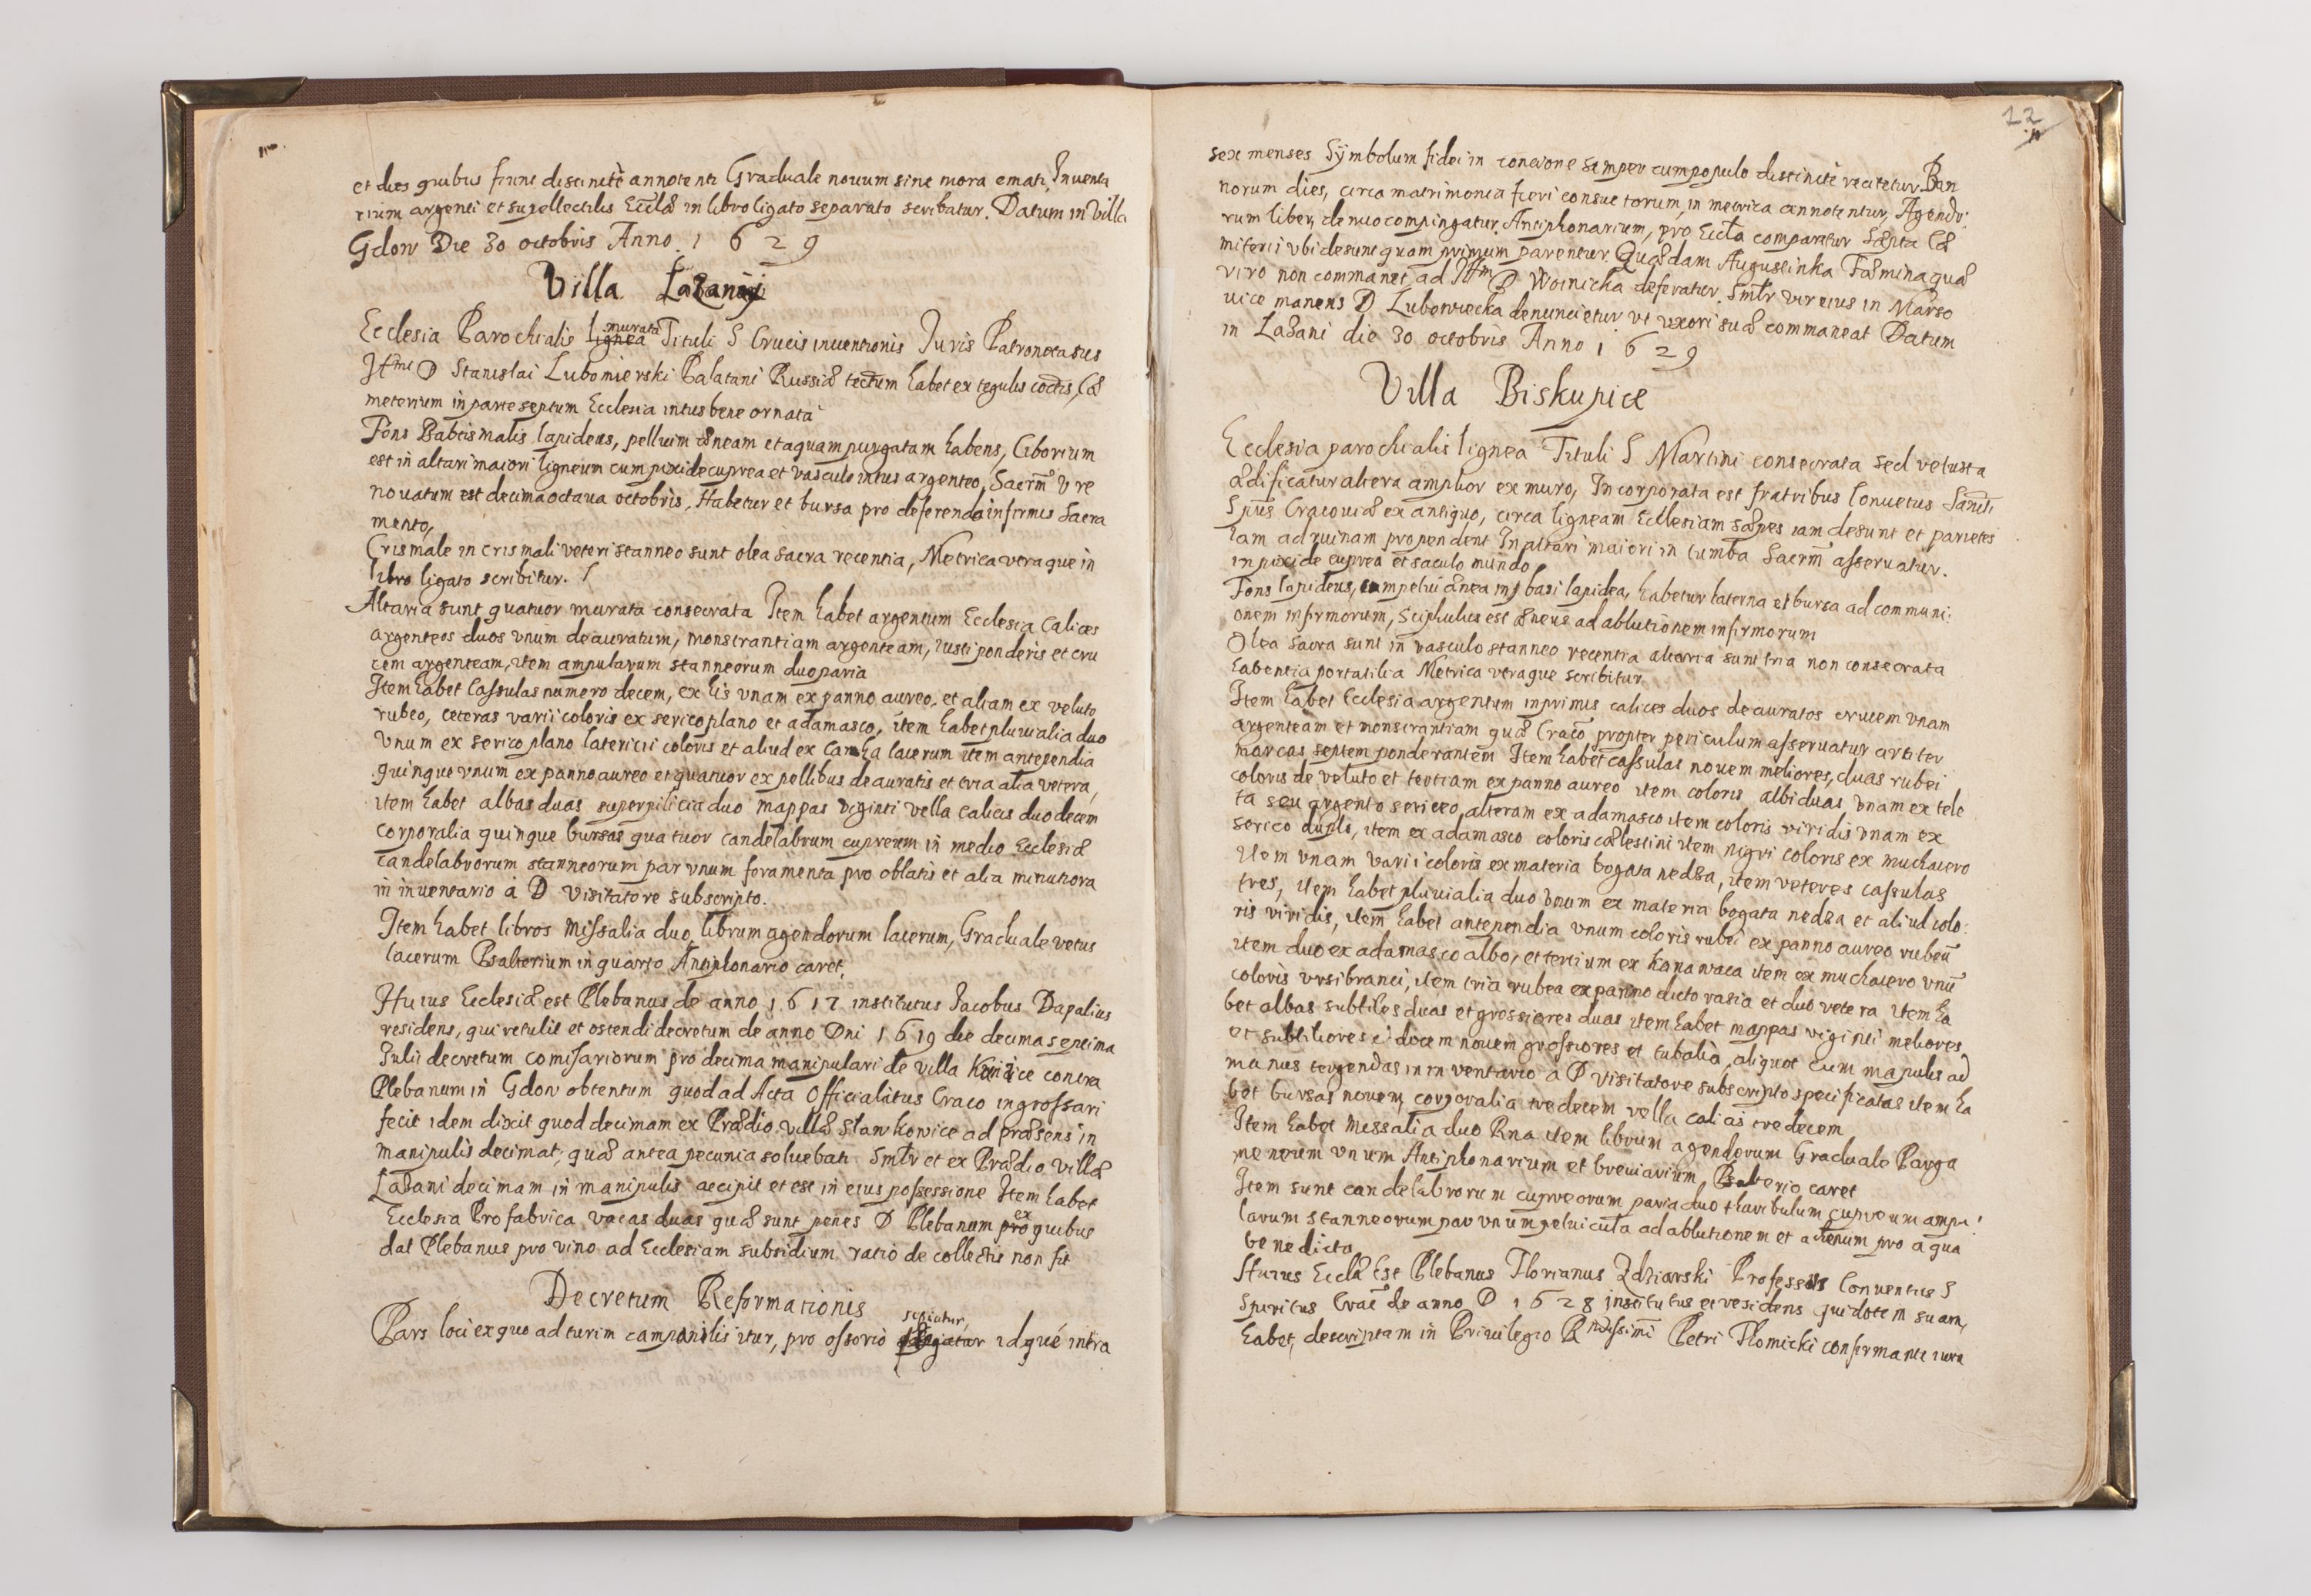 et dies quibus fiunt discinctè annotentr Graduale nouum sine mora ematr, Inuenta
rium argenti et supellectilis Eccłæ in libro ligato separato scribatur. Datum in Villa
Gdow Die 30 octobris Anno 1629
Villa Łazany
Ecclesia Parochialis lignea murata Tituli S Crucis inuentionis Juris Patronatus
Illmi D Stanislai Lubomierski Palatani Russiæ tectum habet ex tegulis coctis, Cæ
meterium in parte septum Ecclesia intus bene ornata
Fons Babtismalis lapideus, peluim æneam et aquam purgatam habens, Ciborium
est in altari maiori ligneum cum pixide cuprea et vasculo intus argenteo, Sacrm̄ v re
nouatum est decima octaua octobris, Habetur et bursa pro deferendo infirmis Sacra
mento,
Crismale in crismali veteri stanneo sunt olea sacra recentia, Metrica vtraque in
libro ligato scribitur.
Altaria sunt quatuor murata consecrata Item habet argentum Ecclesia Calices
argenteos duos vnum deauratum, monstrantiam argenteam, iusti ponderis et cru
cem argenteam, item ampularum stanneorum duo paria
Item habet Cassulas numero decem, ex his vnam ex panno aureo, et aliam ex veluto
rubeo, ceteras varii coloris ex serico plano et adamasco, item habet pluuialia duo
Vnum ex serico plano latericii coloris et aliud ex Camha lacerum item antependia
quinque vnum ex panno aureo et quatuor ex pellibus deauratis et tria alia vetera,
item habet albas duas superpilicia duo mappas viginti vella calicis duodecem
corporalia quinque bursas quatuor candelabrum cupreum in medio Ecclesiæ
candelabrorum stanneorum par vnum foramenta pro oblatis et alia minutiora
in inuentario à D Visitatore subscripto.
Item habet libros Missalia duo, librum agendorum lacerum, Graduale vetus
lacerum Psalterium in quarto Antiphonario caret.
Huius Ecclesiæ est Plebanus de anno 1617 institutus Jacobus Dapalius
residens, qui retulit et ostendi decretum de anno Dni 1619 die decima septima
Julii decretum comissariorum pro decima manipulari de villa contra
Plebanum in Gdow obtentum quod ad Acta Officialatus Craco ingrossari
fecit idem dixit quod decimam ex Prædio villæ Sławkowice ad præsens in
manipulis decimat, quæ antea pecunia soluebatr. Smłr et ex Prædio villæ
Łazani decimam in manipulis accipit et est in eius possessione Item habet
Ecclesia Pro fabrica vacas duas quæ sunt penes D Plebanum pro ex quibus
dat Plebanus pro vino ad Ecclesiam subsidium ratio de collectis non fit
Decretum Reformationis
Pars loci ex quo ad turim campanilis itur, pro ossorio sepiatur, idqué intra
22
sex menses Symbolum fidei in concione semper cum populo distincte recitetur. Ban
norum dies, circa matrimonia fieri consuetorum, in metrica annotentur, Agendo
rum liber, denuo compingatur, Antiphonarium, pro Eccła comparatur Sæpta Cæ
miterii vbi desunt quam primum parentur. Quædam Augustinka Fæmina quæ
viro non commanet, ad Illm D Woinicka deferatur. Smłr vir eius in Marso
uice manens D Lubowiecka denuncietur vt vxori suæ commaneat Datum
in Łazani die 30 octobris Anno 1629
Villa Biskupice
Ecclesia parochialis lignea Tituli S Martini consecrata sed vetusta
ædificatur altera amplior ex muro, Incorporata est fratribus Conuetus Sancti
Spūs Cracouiæ ex antiquo, circa ligneam Ecclesiam sæpes iam desunt et parietes
iam ad ruinam propendent In altari maiori in tumba Sacrm̄ asseruatur.
in pixide cuprea et saculo mundo
Fons lapideus, cum pelui ænea in basi lapidea, habetur laterna et bursa ad communi:
onem infirmorum, Sciphulus est æneus ad ablutionem infirmorum
Olea Sacra sunt in vasculo stanneo recentia altaria sunt tria non consecrata
habentia portatilia Metrica vtraque scribitur
Item habet Ecclesia argentum inprimis calices duos deauratos crucem vnam
argenteam et monstrantiam quæ Craco propter periculum asseruatur
marcas septem ponderantem Item habet cassulas nouem meliores, duas rubei
coloris de veluto et tertiam ex panno aureo item coloris albi duas vnam ex tele
ta seu argento sericeo alteram ex adamasco item coloris viridis vnam ex
serico duplo, item ex adamasco coloris cælestini item nigri coloris ex muchaiero
item vnam varii coloris ex materia bogata nedza, item veteres cassulas
tres, item habet pluuialia duo vnum ex materia bogata nedza et aliud colo:
ris viridis, item habet antependia vnum coloris rubei ex panno aureo rubeū
item duo ex adamasco albo, et tertium ex kanawaca item ex muchaiero vnū
coloris vrsibranci, item tria rubea ex panno dicto rasia et duo vetera item ha
bet albas subtiles duas et grossiores duas item habet mappas viginti meliores
et subtiliores et docem nouem grossiores et tubalia aliquot cum mapulis ad
manus tergendas in inventario a D Visitatore subscripto specificatas item ha
bet bursas nouem, corporalia tredecem vella calicis tredecem
Item habet Messalia duo Rna item librum agendorum Graduale Parga
menorum vnum Antiphonarium et breuiarium, Psalterio caret
Item sunt candelabrorum cupreorum paria duo tharibulum cupreum ampu:
larum stanneorum par vnum peluicula ad ablutionem et ahenum pro aqua
benedicta
Huius Eccłæ Est Plebanus Florianus Zdziarski Professus Conuentus S
Spiritus Craē de anno D 1628 institutus et residens qui dotem suam,
habet, descriptam in Priuilegio Rndissimi Petri Thomicki confirmante iura